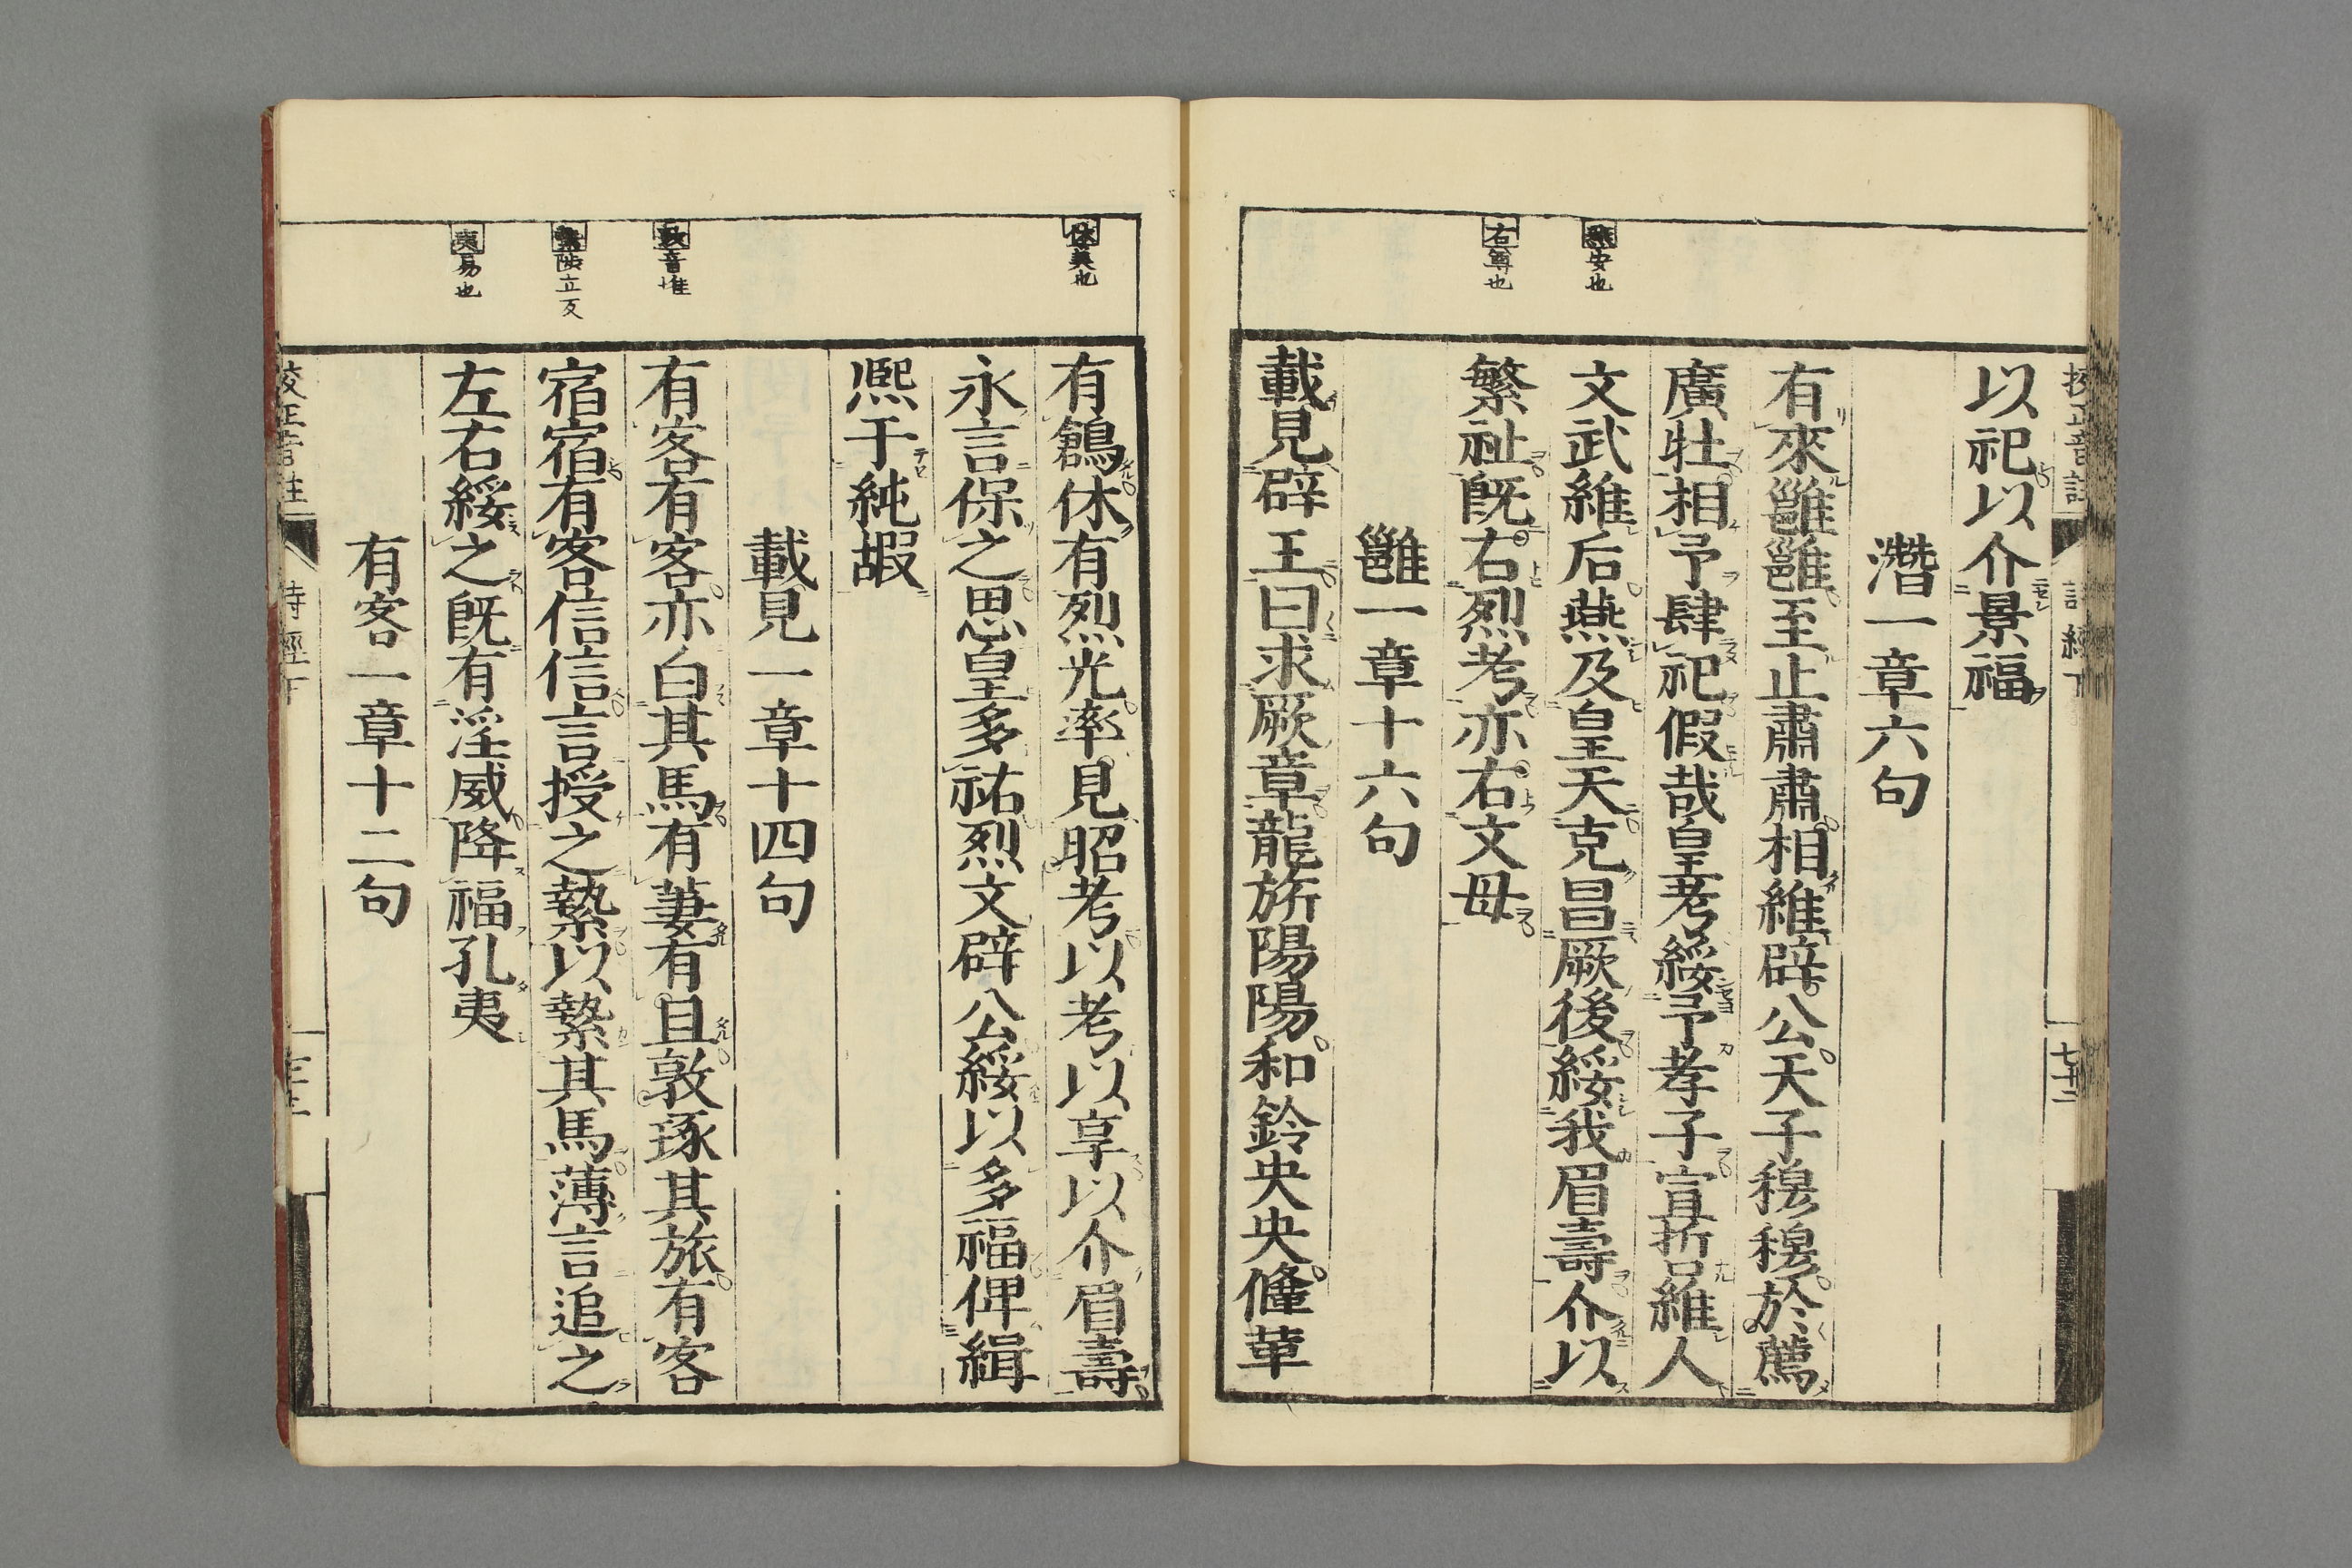 以祀以介景福
潛一章六句
有來雝雝至止肅肅相維辟公天子穆穆於薦
廣牡相予肆祀假哉皇考綏予孝子宣哲維人
文武維后燕及皇天克昌厥後綏我眉壽介以
繁祉既右烈考亦右文母
雝一章十六句
載見辟王曰求厥章龍旂陽陽和鈴央央鞗革
燕安也
右尊也
有鶬休有烈光率見昭考以考以享以介眉壽
永言保之思皇多祜烈文辟公綏以多福俾緝
熙于純嘏
載見一章十四句
有客有客亦白其馬有萋有且敦琢其旅有客
宿宿有客信信言授之縶以縶其馬薄言追之
左右綏之既有淫威降福孔夷
有客一章十二句
休美也
敦音堆
縶陟立反
夷易也
詩經下